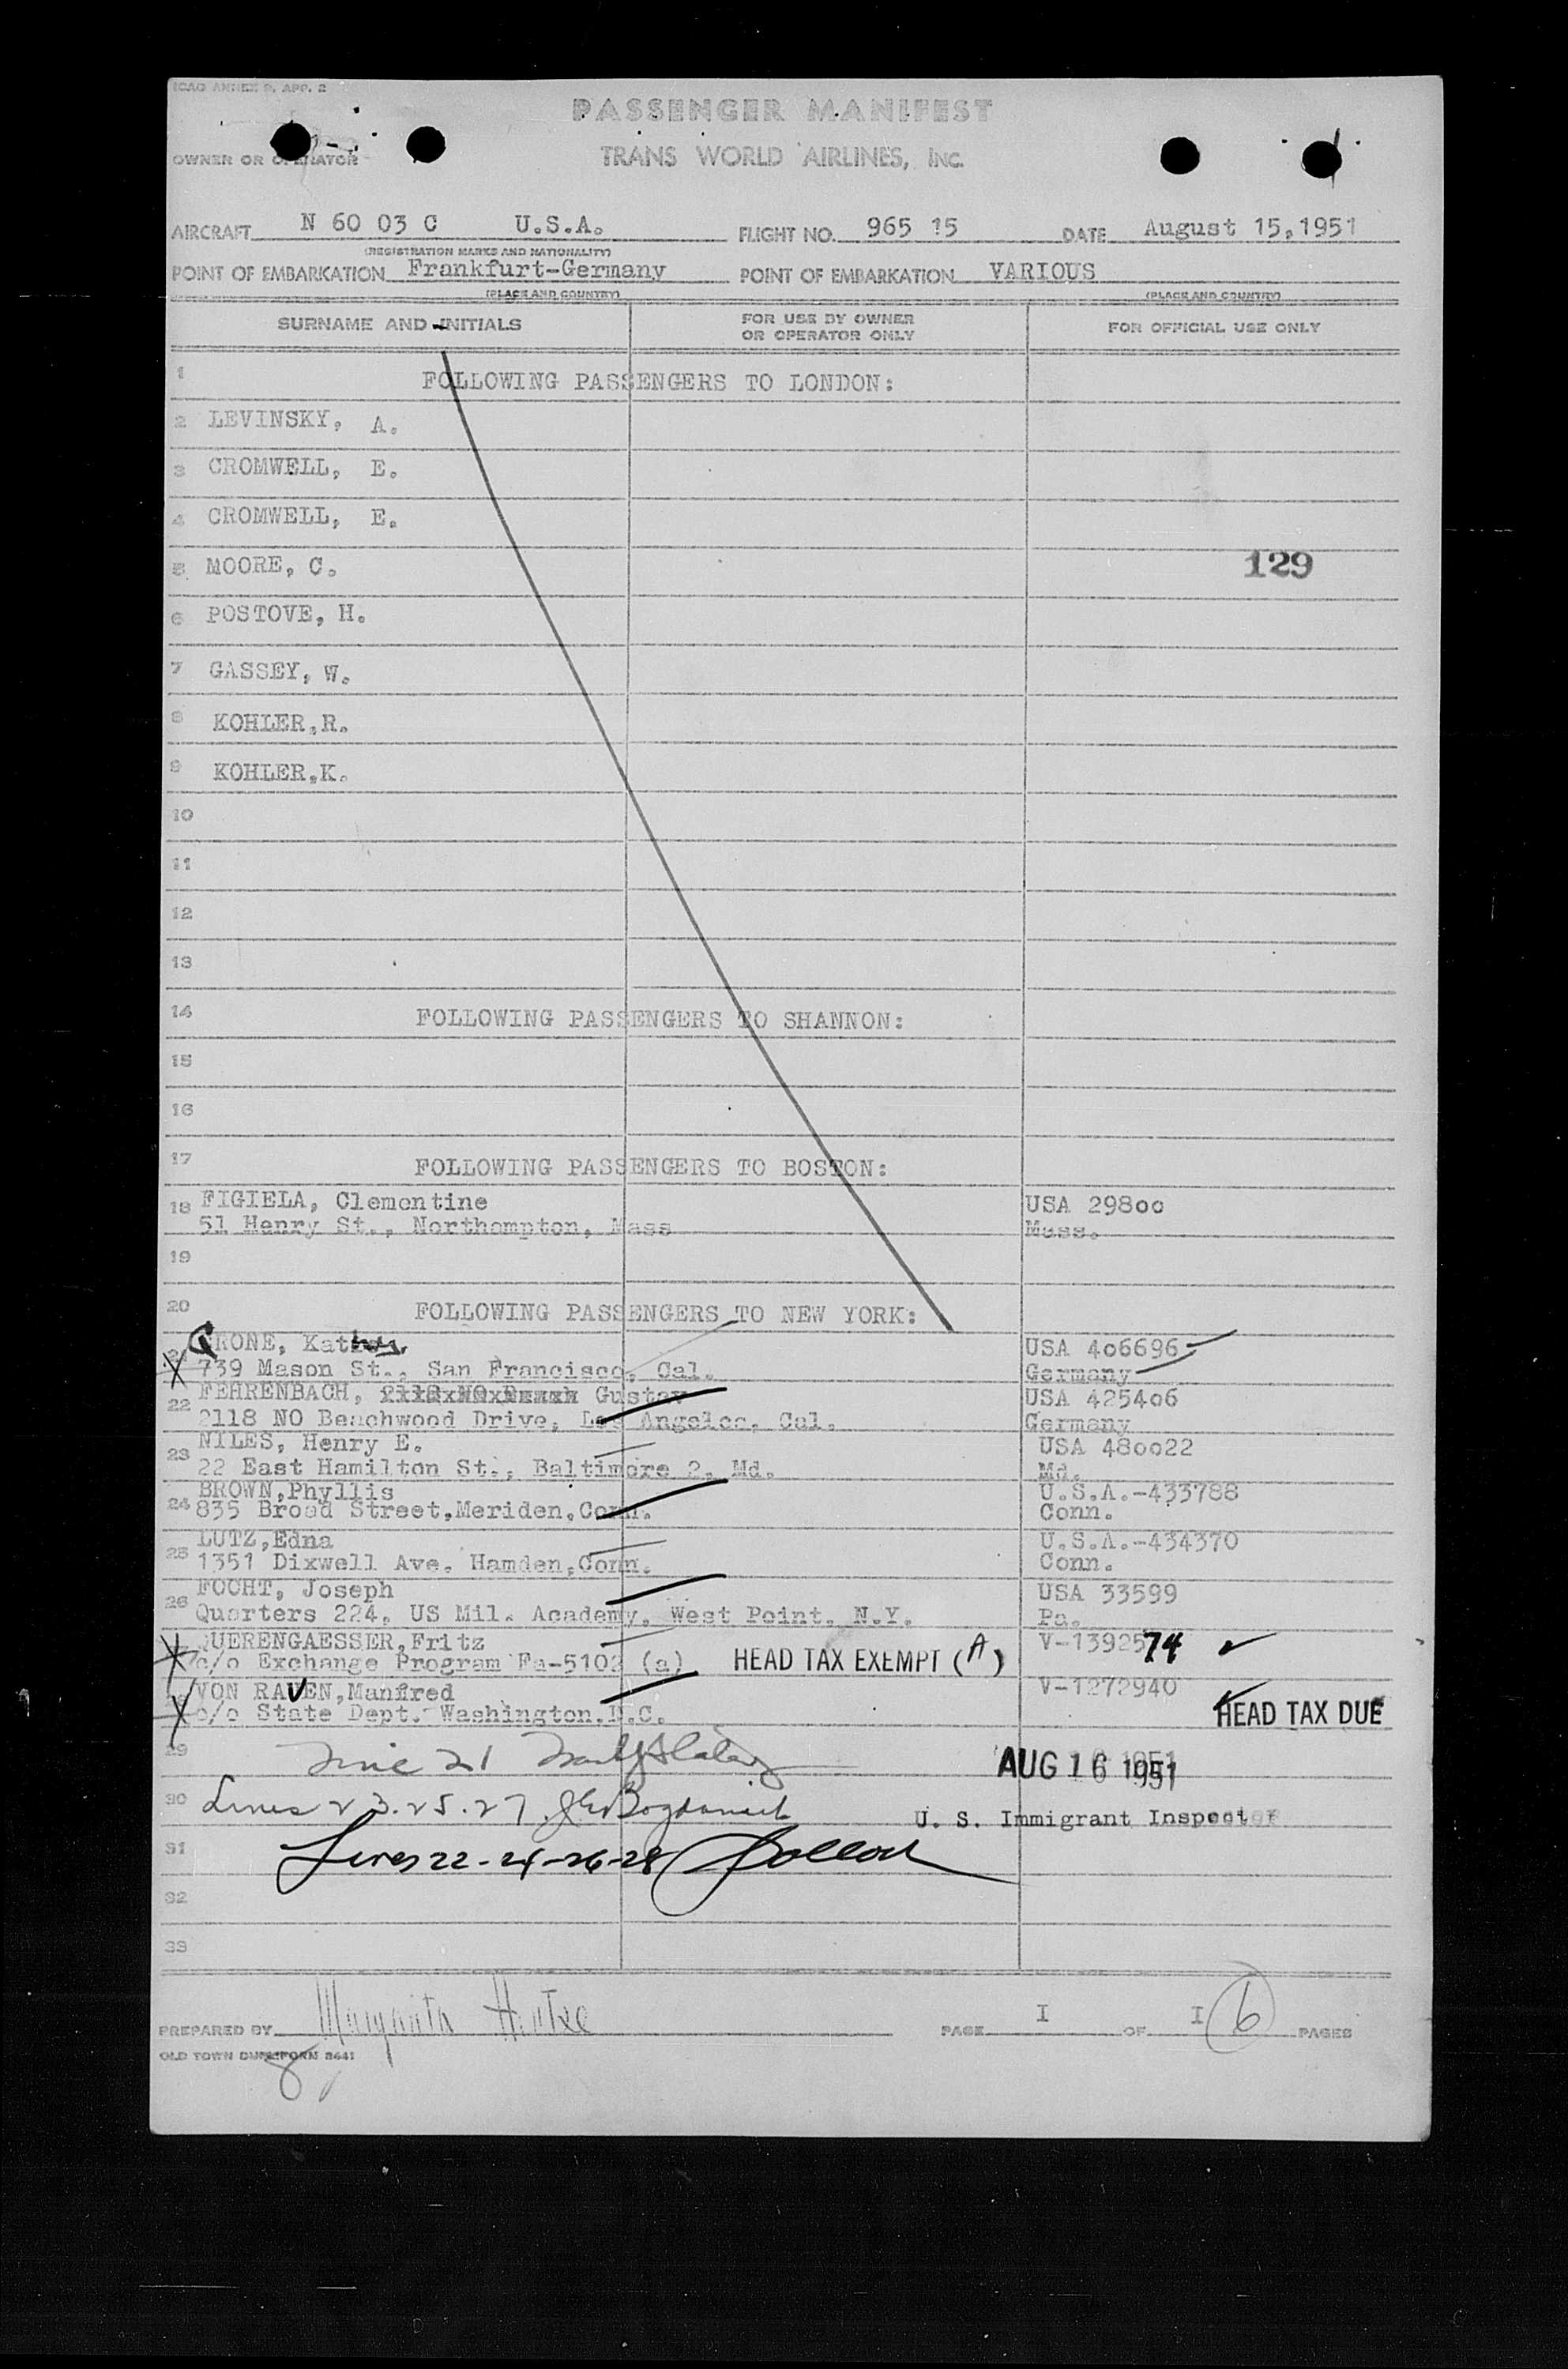 ICAO ANNEX 9, APP. 2
PASSENGER MANIFEST
OWNER OR OPERATOR
TRANS WORLD AIRLINES, Inc.
AIRCRAFT N 60 03 C U.S.A. FLIGHT NO. 965 15 DATE August 15,1951
(REGISTRATION MARKS AND NATIONALITY)
POINT OF EMBARKATION Frankfurt-Germany POINT OF EMBARKATION VARIOUS
(PLACE AND COUNTRY) (PLACE AND COUNTRY)
SURNAME AND INITIALS FOR USE BY OWNER OR OPERATOR ONLY FOR OFFICIAL USE ONLY
1 FOLLOWING PASSENGERS TO LONDON:
2 LEVINSKY, A.
3 CROMWELL, E.
4 CROMWELL, E.
5 MOORE, C. 129
6 POSTOVE, H.
7 GASSEY, W.
8 KOHLER,R.
9 KOHLER,K.
10
11
12
13
14 FOLLOWING PASSENGERS TO SHANNON:
15
16
17 FOLLOWING PASSENGERS TO BOSTON:
18 FIGIELA, Clementine USA 29800
51 Henry St., Northampton, Mass Mass.
19
20 FOLLOWING PASSENGERS TO NEW YORK:
RONE, USA 406696
739 Mason St., San Francisco, Cal. Germany
22 FEHRENBACH, Gustav USA 425406
2118 NO Beachwood Drive, Los Angeles, Cal. Germany
23 NILES, Henry E. USA 480022
22 East Hamilton St., Baltimore 2, Md. Md.
24 BROWN,Phyllis U.S.A.-433788
835 Broad Street,Meriden,Conn. Conn.
25 LUTZ,Edna U.S.A.-434370
1351 Dixwell Ave. Hamden,Conn. Conn.
26 FOCHT, Joseph USA 33599
Quarters 224, US Mil. Academy, West Point, N.Y. Pa.
QUERENGAESSER,Fritz V-1392574
c/o Exchange Program Fa-5102 (a) HEAD TAX EXEMPT (A)
VON RAVEN,Manfred V-1272940
c/o State Dept. Washington.D.C. HEAD TAX DUE
29 Line 21 AUG 16 1951
30 Lines 23.25.27 U. S. Immigrant Inspector
31 Lines 22-24-26-28
32
33
PREPARED BY Margarita PAGE I OF I 6 PAGES
OLD TOWN DUPLIFORM 3441